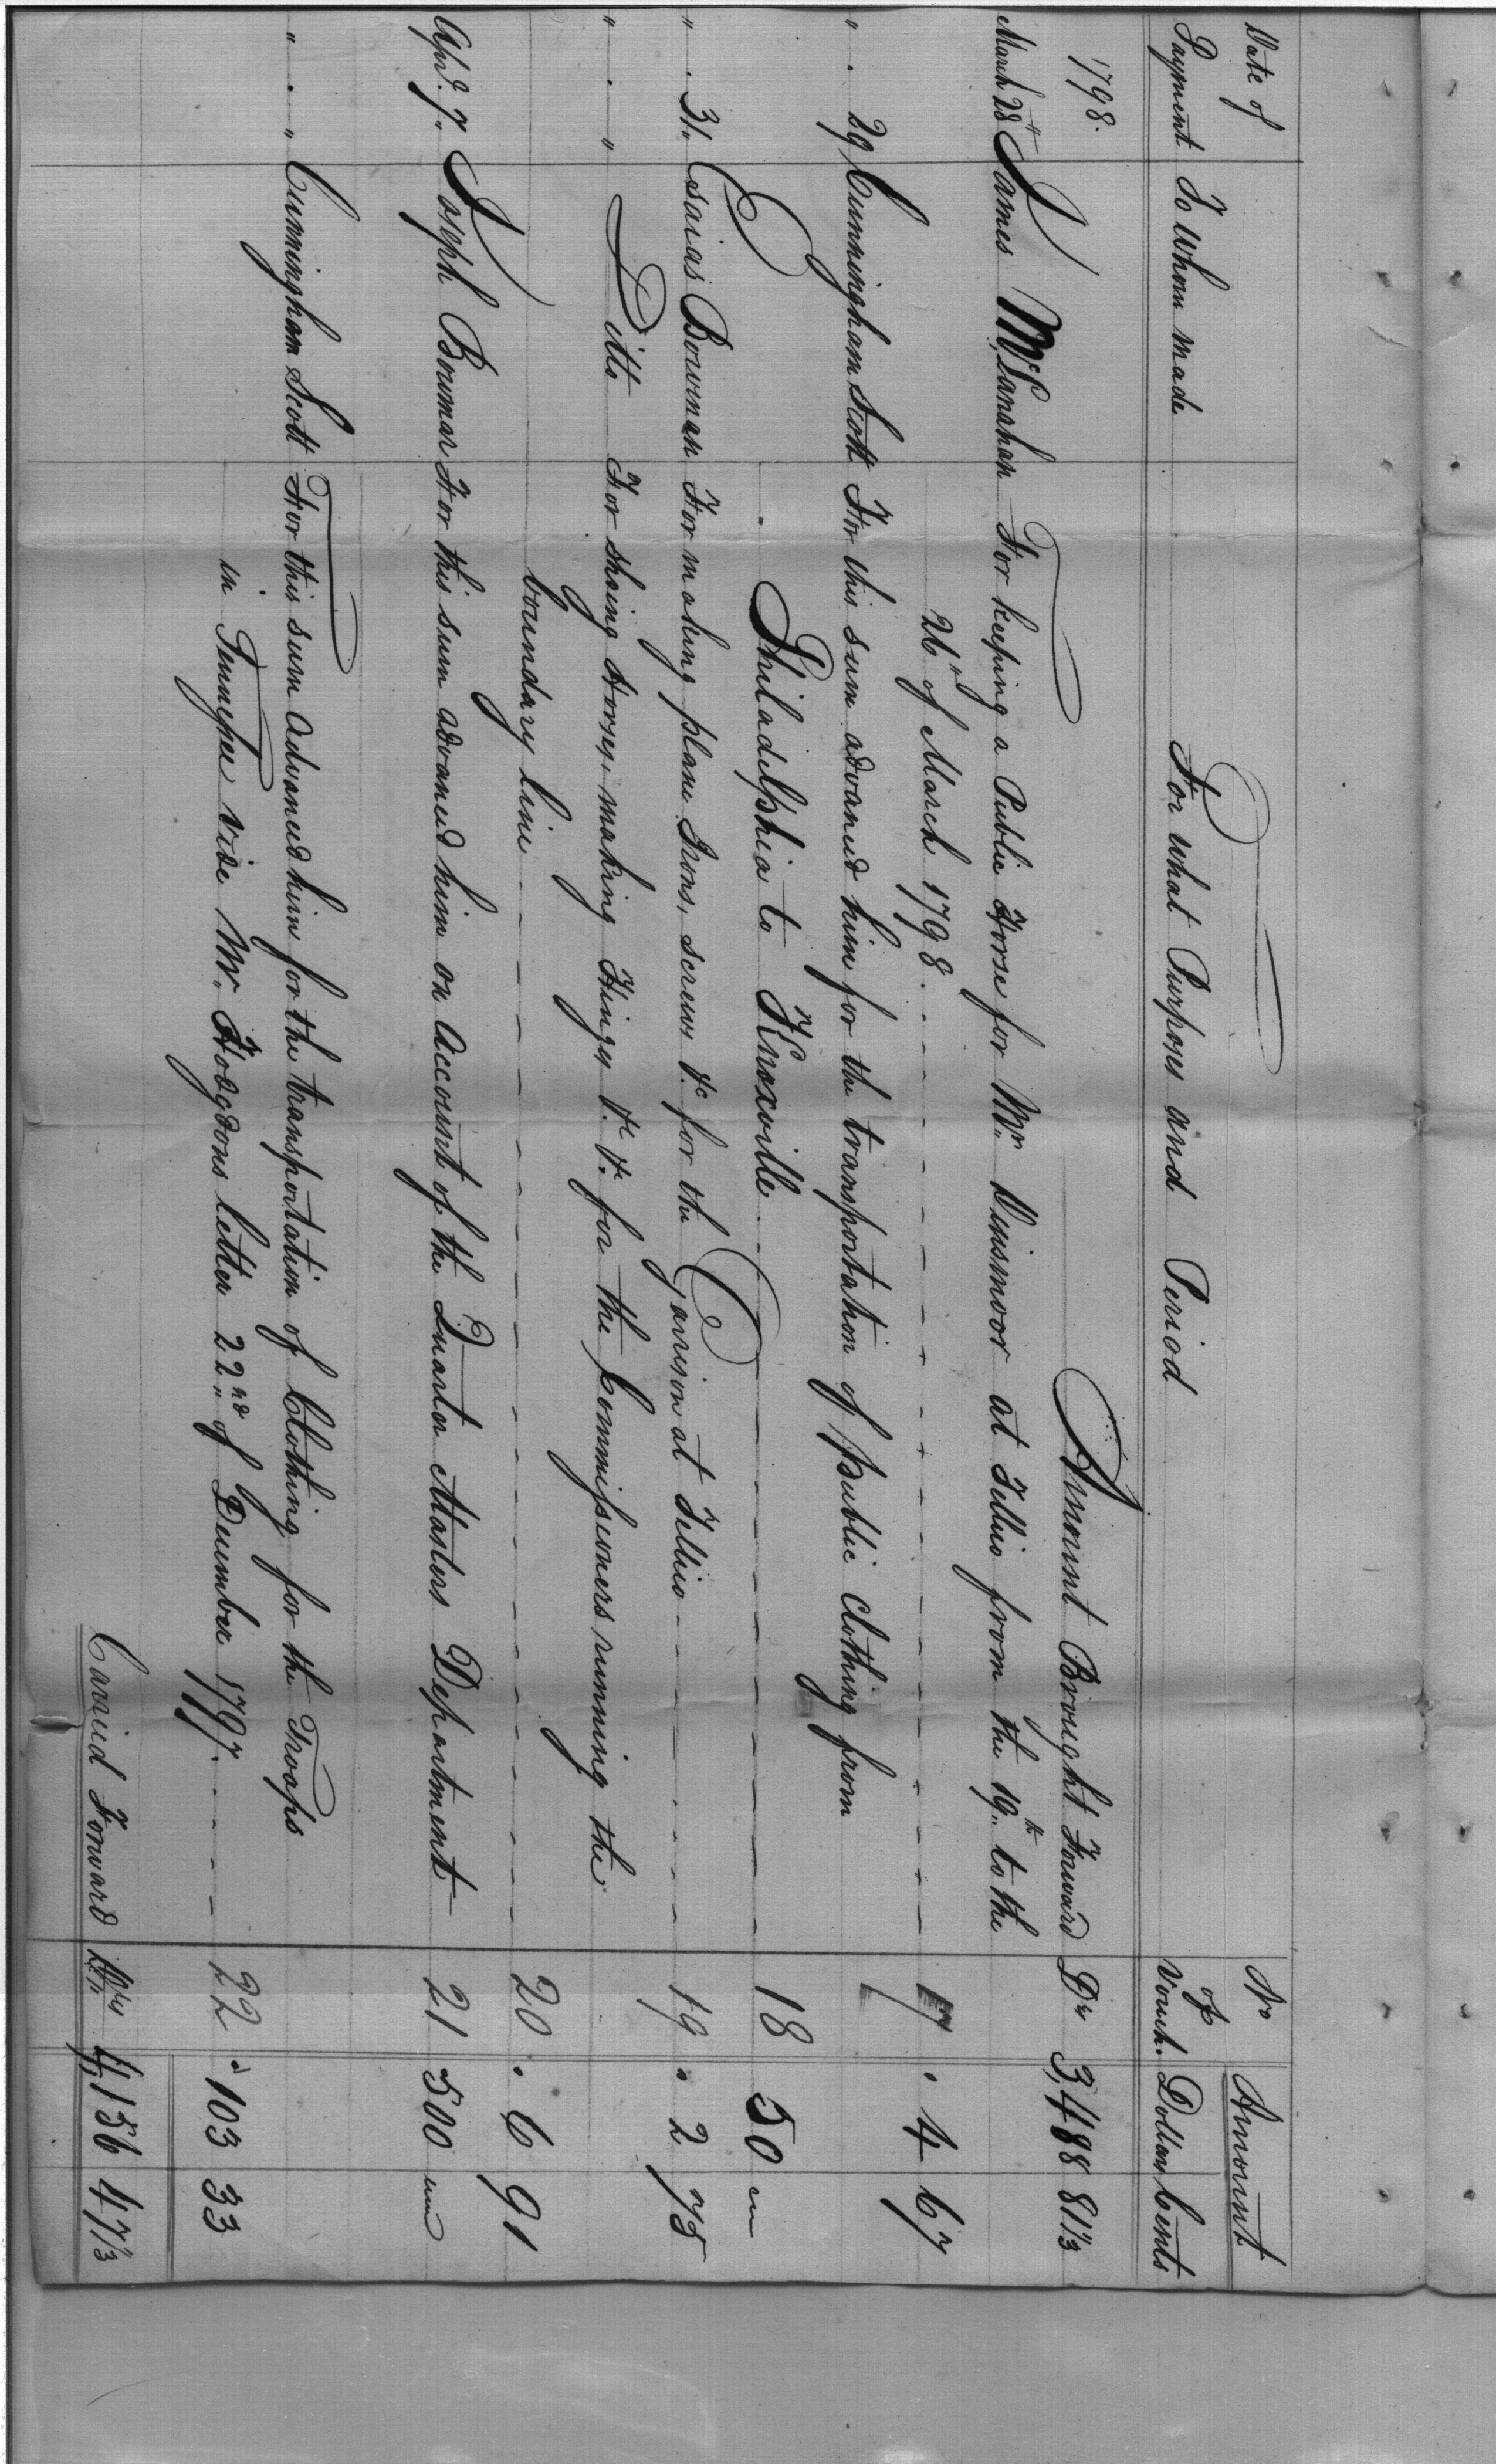 Date of Payment To Whom made For what Purposes and Period No of Vouch. Amount Dollars Cents
1798.
Amount Brought Forward Drs 3,488 81 1/3
March 28th James McClanahan For keeping a Public Horse for Mr Dinsmoor at Tellico from the 19th to the
26th of March 1798. 17 . 4 67
" . 29 Cunningham Scott For this sum advanced him for the transportation of Public Clothing from
Philadelphia to Knoxville 18 50 "
" . 31. Esaias Bowman For making plane Irons, screws &c for the Garrison at Tellico 19 . 2 75
" . " Ditto For shoing Horses, making Hinges &c &c. for the Commissioners running the
boundary line 20 . 6 91
Aprl. 7. Joseph Bowmar For this sum advanced him on Account of the Quarter Masters Department 21 500 "
" . " Cunningham Scott For this sum Advanced him for the transportation of Clothing for the Troops
in Tennessee vide Mr. Hodgdons letter 22nd of December 1797. 22 103 33
Carried Forward Drs 4,156 47 1/3